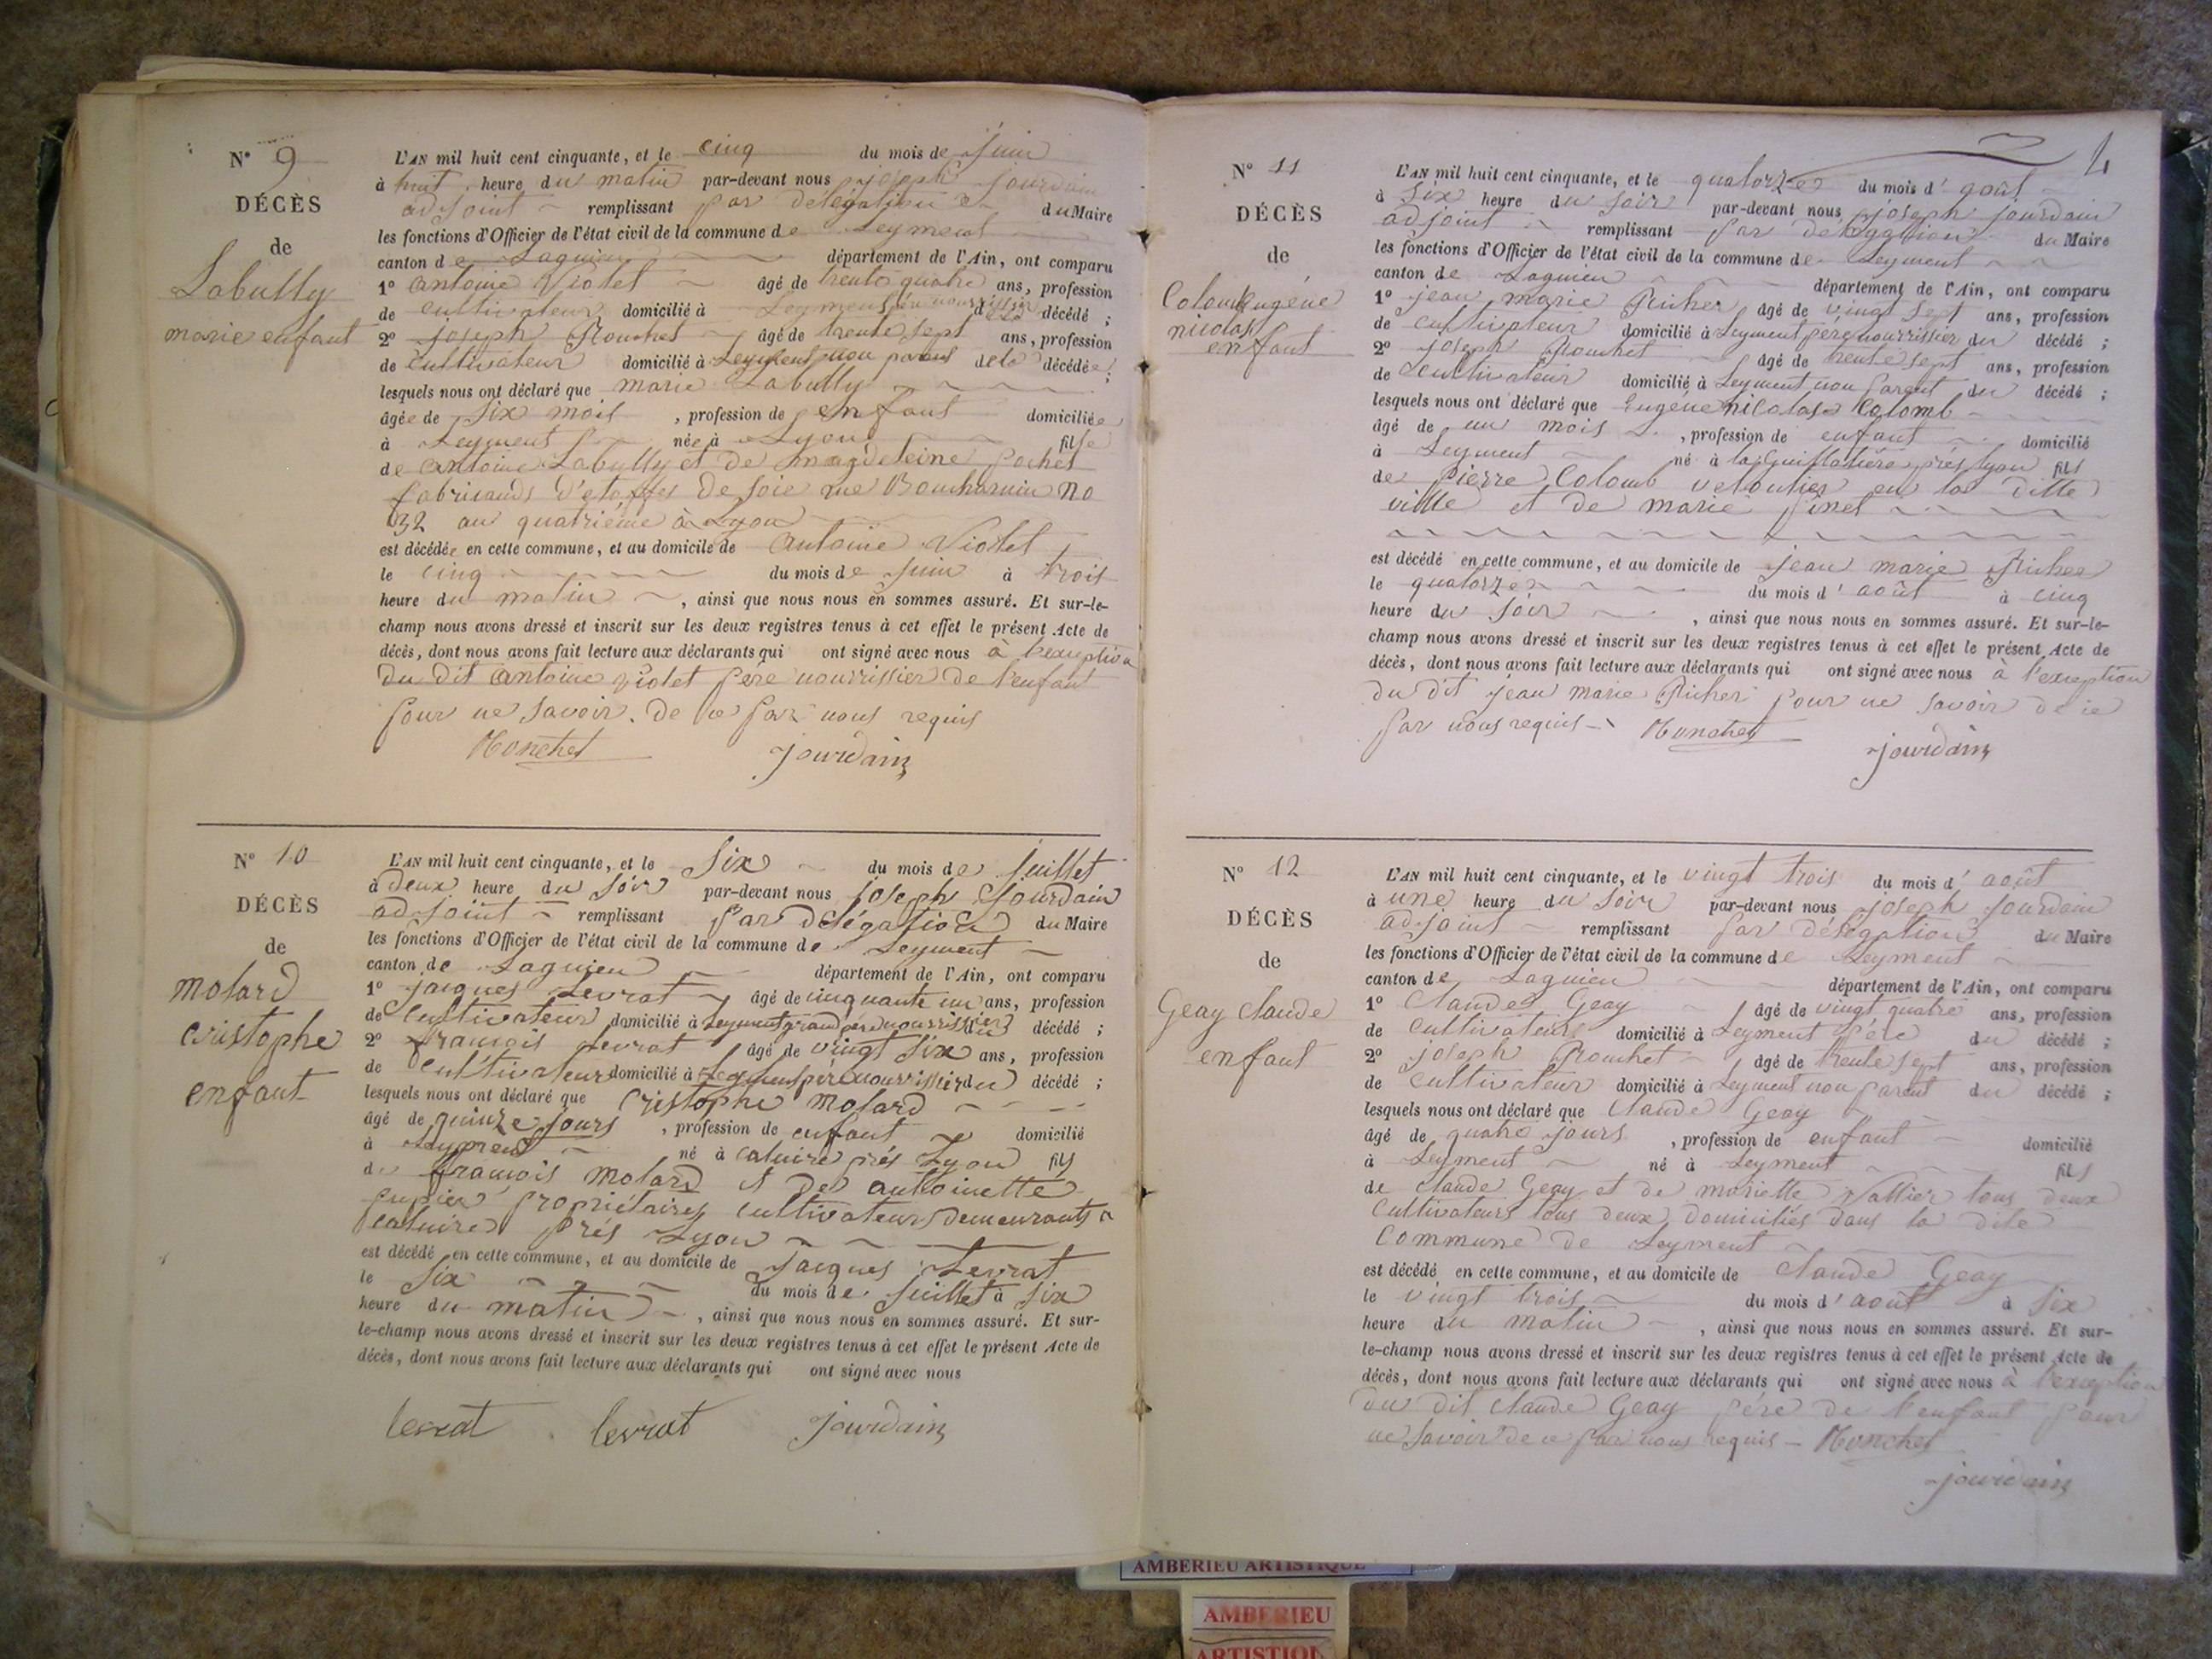 N° 9
DÉCÈS
de
Labully
marie enfant
L'AN mil huit cent cinquante, et le cinq du mois de juin
à huit heure du matin par-devant nous joseph jourdain
adjoint remplissant par délégation du Maire
les fonctions d'Officier de l'état civil de la commune de Leyment
canton de Lagnieu département de l'Ain, ont comparu
1° antoine Violet âgé de trente quatre ans, profession
de cultivateur domicilié à Leyment père nourrissier de la décédé ;
2° joseph Mouchet âgé de trente sept ans, profession
de cultivateur domicilié à Leyment non parent de la décédée ;
lesquels nous ont déclaré que marie Labully
âgée de six mois , profession de enfant domiciliée
à Leyment née à Lyon fille
de antoine Labully et de magdeleine Pochet
fabricands d'etoffes de soie rue Boucharnin no
132 au quatrième à Lyon
est décédée en cette commune, et au domicile de antoine Violet
le cinq du mois de juin à trois
heure du matin , ainsi que nous nous en sommes assuré. Et sur-le-
champ nous avons dressé et inscrit sur les deux registres tenus à cet effet le présent Acte de
décès, dont nous avons fait lecture aux déclarants qui ont signé avec nous à l'exception
du dit antoine violet père nourrissier de l'enfant
pour ne savoir. de ce par nous requis
Mouchet jourdain
N° 10
DÉCÈS
de
molard
cristophe
enfant
L'AN mil huit cent cinquante, et le six du mois de juillet
à deux heure du soir par-devant nous joseph jourdain
adjoint remplissant par délégation du Maire
les fonctions d'Officier de l'état civil de la commune de Leyment
canton de Lagnieu département de l'Ain, ont comparu
1° jacques Levrat âgé de cinquante un ans, profession
de cultivateur domicilié à Leyment grand père nourrissier du décédé ;
2° françois Levrat âgé de vingt six ans, profession
de cultivateur domicilié à Leyment père nourrissier du décédé ;
lesquels nous ont déclaré que cristophe molard
âgé de quinze jours , profession de enfant domicilié
à Leyment né à caluire près Lyon fils
de françois molard et de antoinette
propriétaires cultivateurs demeurants a
caluire près Lyon
est décédé en cette commune, et au domicile de jacques Levrat
le six du mois de juillet à six
heure du matin , ainsi que nous nous en sommes assuré. Et sur-
le-champ nous avons dressé et inscrit sur les deux registres tenus à cet effet le présent Acte de
décès, dont nous avons fait lecture aux déclarants qui ont signé avec nous
levrat levrat jourdain
4
N° 11
DÉCÈS
de
Colomb eugéne
nicolas
enfant
L'AN mil huit cent cinquante, et le quatorze du mois d'août
à six heure du soir par-devant nous joseph jourdain
adjoint remplissant par délégation du Maire
les fonctions d'Officier de l'état civil de la commune de Leyment
canton de Lagnieu département de l'Ain, ont comparu
1° jean marie Richer âgé de vingt sept ans, profession
de cultivateur domicilié à Leyment père nourrissier du décédé ;
2° joseph Mouchet âgé de trente sept ans, profession
de cultivateur domicilié à Leyment non parent du décédé ;
lesquels nous ont déclaré que Eugéne nicolas Colomb
âgé de un mois , profession de enfant domicilié
à Leyment né à la Guillotière près lyon fils
de pierre Colomb veloutier en la ditte
ville et de marie pinet
est décédé en cette commune, et au domicile de jean marie Richer
le quatorze du mois d'août à cinq
heure du soir , ainsi que nous nous en sommes assuré. Et sur-le-
champ nous avons dressé et inscrit sur les deux registres tenus à cet effet le présent Acte de
décès, dont nous avons fait lecture aux déclarants qui ont signé avec nous à l'exception
du dit jean marie Richer pour ne savoir de ce
par nous requis Mouchet
jourdain
N° 12
DÉCÈS
de
Geay claude
enfant
L'AN mil huit cent cinquante, et le vingt trois du mois d'août
à une heure du soir par-devant nous joseph jourdain
adjoint remplissant par délégation du Maire
les fonctions d'Officier de l'état civil de la commune de Leyment
canton de Lagnieu département de l'Ain, ont comparu
1° Claude Geay âgé de vingt quatre ans, profession
de cultivateur domicilié à Leyment père du décédé ;
2° joseph Mouchet âgé de trente sept ans, profession
de cultivateur domicilié à Leyment non parent du décédé ;
lesquels nous ont déclaré que Claude Geay
âgé de quatre jours , profession de enfant domicilié
à Leyment né à Leyment fils
de claude Geay et de mariette Vallier tous deux
cultivateurs tous deux domiciliés dans la dite
commune de Leyment
est décédé en cette commune, et au domicile de claude Geay
le vingt trois du mois d'août à six
heure du matin , ainsi que nous nous en sommes assuré. Et sur-
le-champ nous avons dressé et inscrit sur les deux registres tenus à cet effet le présent Acte de
décès, dont nous avons fait lecture aux déclarants qui ont signé avec nous à l'exception
du dit claude Geay père de l'enfant pour
ne savoir de ce par nous requis Mouchet
jourdain
AMBERIEU ARTISTIQUE
AMBERIEU
ARTISTIQUE